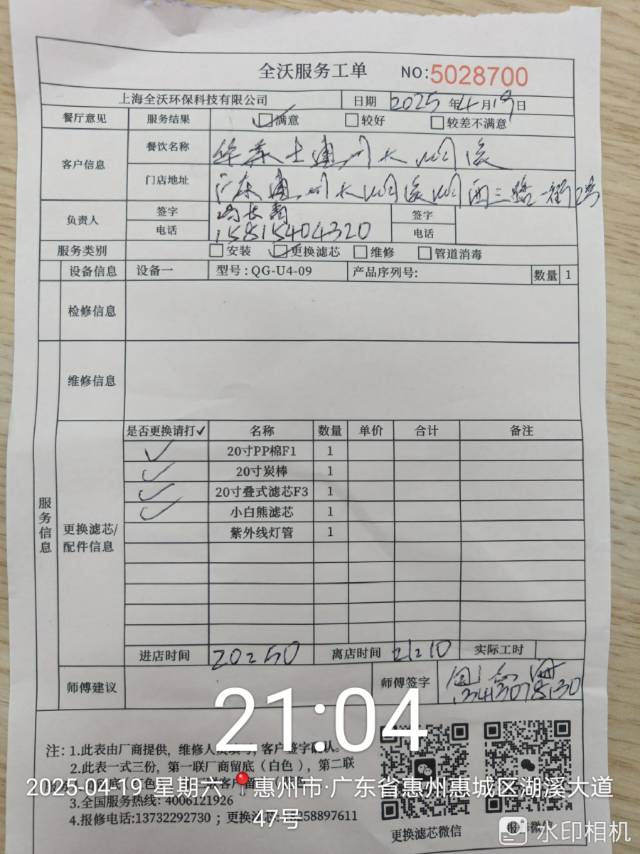 全沃服务工单 NO:5028700
上海全沃环保科技有限公司 日期 2025年4月19日
餐厅意见 服务结果 满意 较好 较差不满意
客户信息 餐饮名称
门店地址 广东惠州大
负责人 签字 签字
电话 15815404320 电话
服务类别 安装 更换滤芯 维修 管道消毒
设备信息 设备一 型号:QG-U4-09 产品序列号: 数量 1
检修信息
维修信息
服务信息
更换滤芯/
配件信息
是否更换请打✓ 名称 数量 单价 合计 备注
✓ 20寸PP棉F1 1
✓ 20寸炭棒 1
✓ 20寸叠式滤芯F3 1
✓ 小白熊滤芯 1
紫外线灯管 1
进店时间 20:50 离店时间 21:10 实际工时
师傅建议 师傅签字
1343078130
21:04
注:1.此表由厂商提供,维修人员填写,客户签字确认。
2.此表一式三份,第一联厂商留底(白色),第二联
2025-04-19 星期六 惠州市·广东省惠州惠城区湖溪大道
47号
3.全国服务热线:4006121926
4.报修电话:13732292730;更换
58897611
更换滤芯微信
微信
水印相机